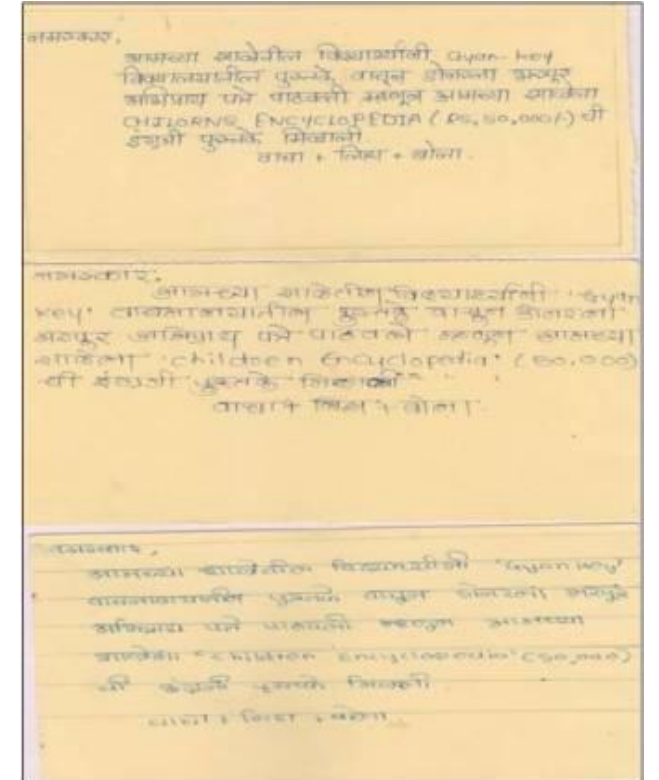 नमस्कार,
आमच्या शाळेतील विद्यार्थ्यांनी Gyan-key
पुस्तके वाचून डोनरला भरपूर
अभिप्राय पत्रे पाठवली म्हणून आमच्या शाळेला
ENCYCLOPEDIA (RS, 50,000/-) ची
इंग्रजी पुस्तके मिळाली.
वाचा + लिहा + बोला.
नमस्कार,
आमच्या शाळेतील विद्यार्थ्यांनी 'Gyan
Key' वाचनालयातील पुस्तके वाचून डोनरला
भरपूर अभिप्राय पत्रे पाठवली म्हणून आमच्या
शाळेला 'children Encyclopedia' (50,000)
ची इंग्रजी पुस्तके मिळाली
वाचा + लिहा + बोला.
नमस्कार,
आमच्या शाळेतील विद्यार्थ्यांनी 'Gyan key'
वाचनालयातील पुस्तके वाचून डोनरला भरपूर
अभिप्राय पत्रे पाठवली म्हणून आमच्या
शाळेला "children Encyclopedia" (50,000)
ची इंग्रजी पुस्तके मिळाली
वाचा + लिहा + बोला.